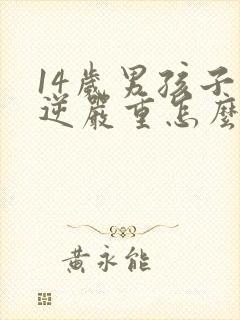 14歲男孩子
逆嚴重怎麼
黃永能